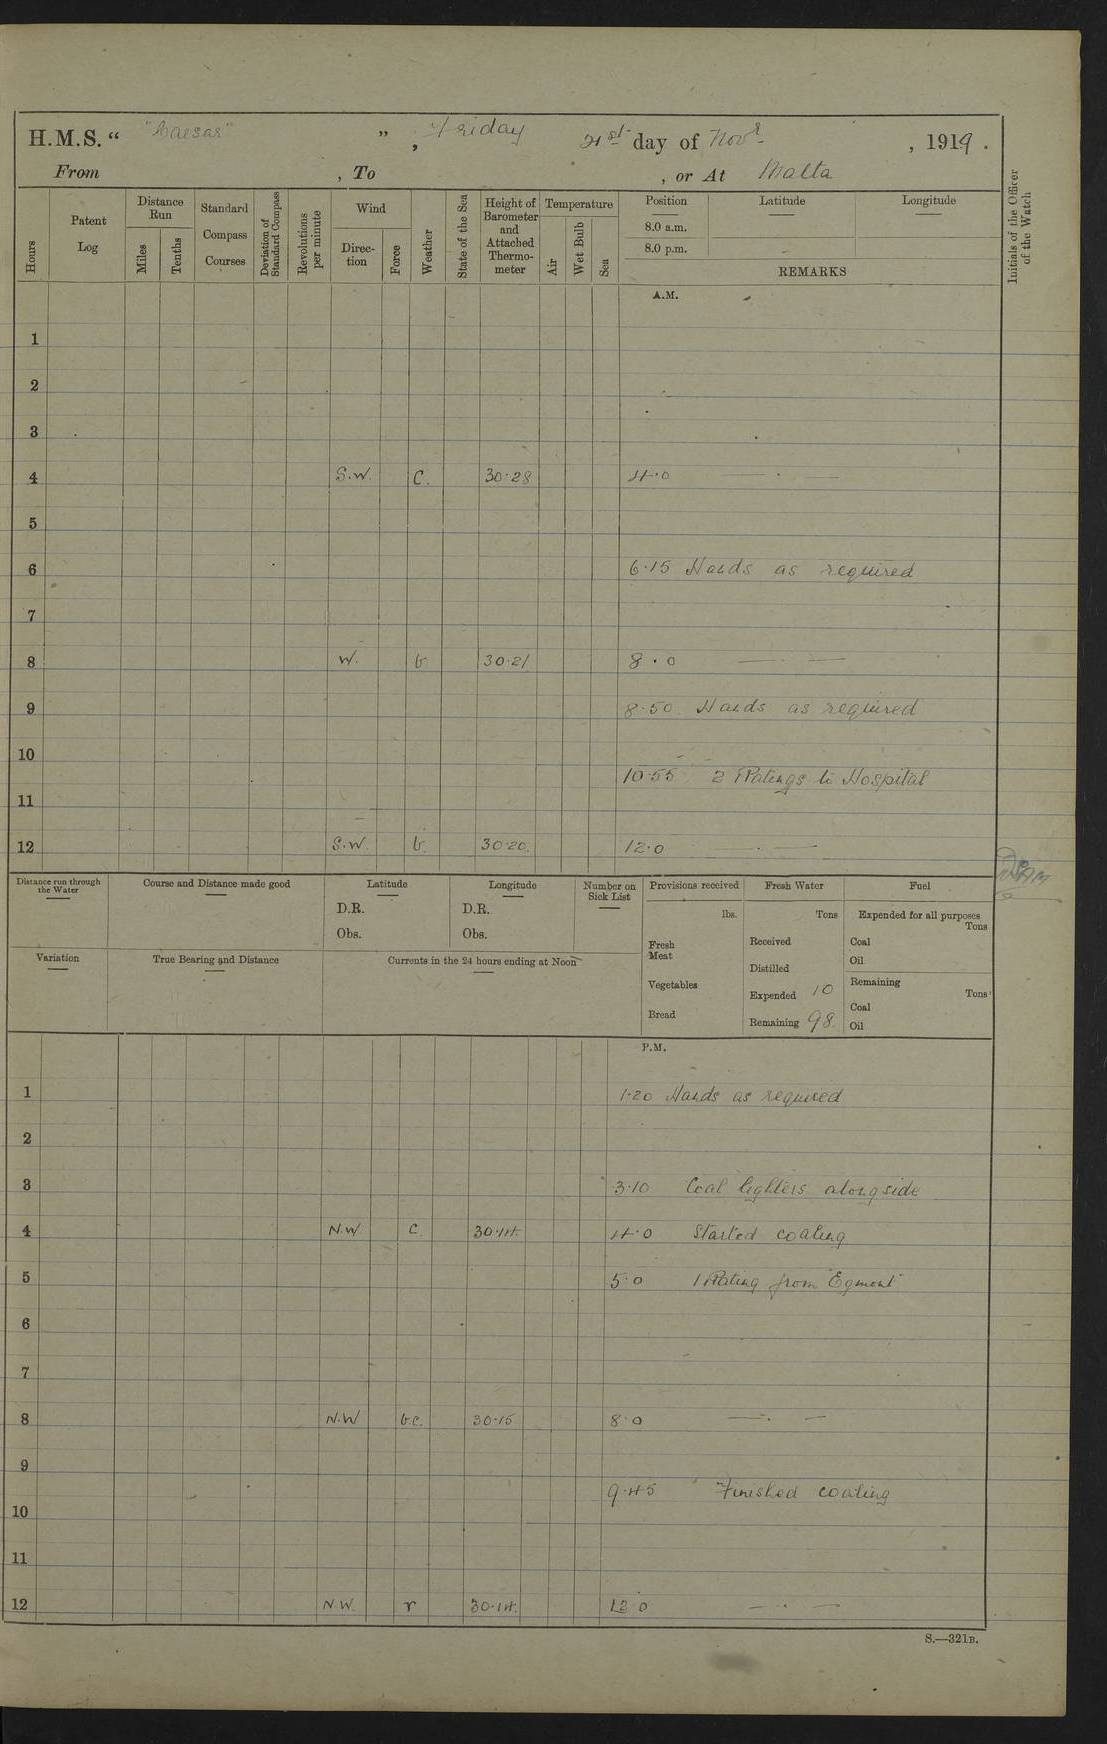 H.M.S. “ "Caesar" ”, Friday 21st day of Novr , 1919.
From , To , or At Malta
Hours
Patent Log
Distance Run
Miles
Tenths
Standard Compass Courses
Deviation of Standard Compass
Revolutions per minute
Wind
Direction
Force
Weather
State of the Sea
Height of Barometer and Attached Thermometer
Temperature
Air
Wet Bulb
Sea
Position Latitude Longitude
8.0 a.m.
8.0 p.m.
REMARKS
Initials of the Officer of the Watch
A.M.
1
2
3
4 S.W. C. 30·28 4·0 — · —
5
6 6·15 Hands as required
7
8 W. b 30·21 8·0 — · —
9 8·50 Hands as required
10
10·55 2 Ratings to Hospital
11
12 S.W. b. 30·20. 12·0 — · —
Distance run through the Water
Course and Distance made good
Latitude
D.R.
Obs.
Longitude
D.R.
Obs.
Number on Sick List
Provisions received
lbs.
Fresh Meat
Vegetables
Bread
Fresh Water
Tons
Received
Distilled
Expended 10
Remaining 98.
Fuel
Expended for all purposes
Tons
Coal
Oil
Remaining
Tons
Coal
Oil
Variation
True Bearing and Distance
Currents in the 24 hours ending at Noon
P.M.
1 1·20 Hands as required
2
3 3·10 Coal lighters alongside
4 N.W C. 30·14. 4·0 Started coaling
5 5·0 1 Rating from "Egmont"
6
7
8 N.W b.c. 30·15 8·0 — · —
9
9·45 Finished coaling
10
11
12 N.W. r 30·14. 12·0 — · —
S.—321B.